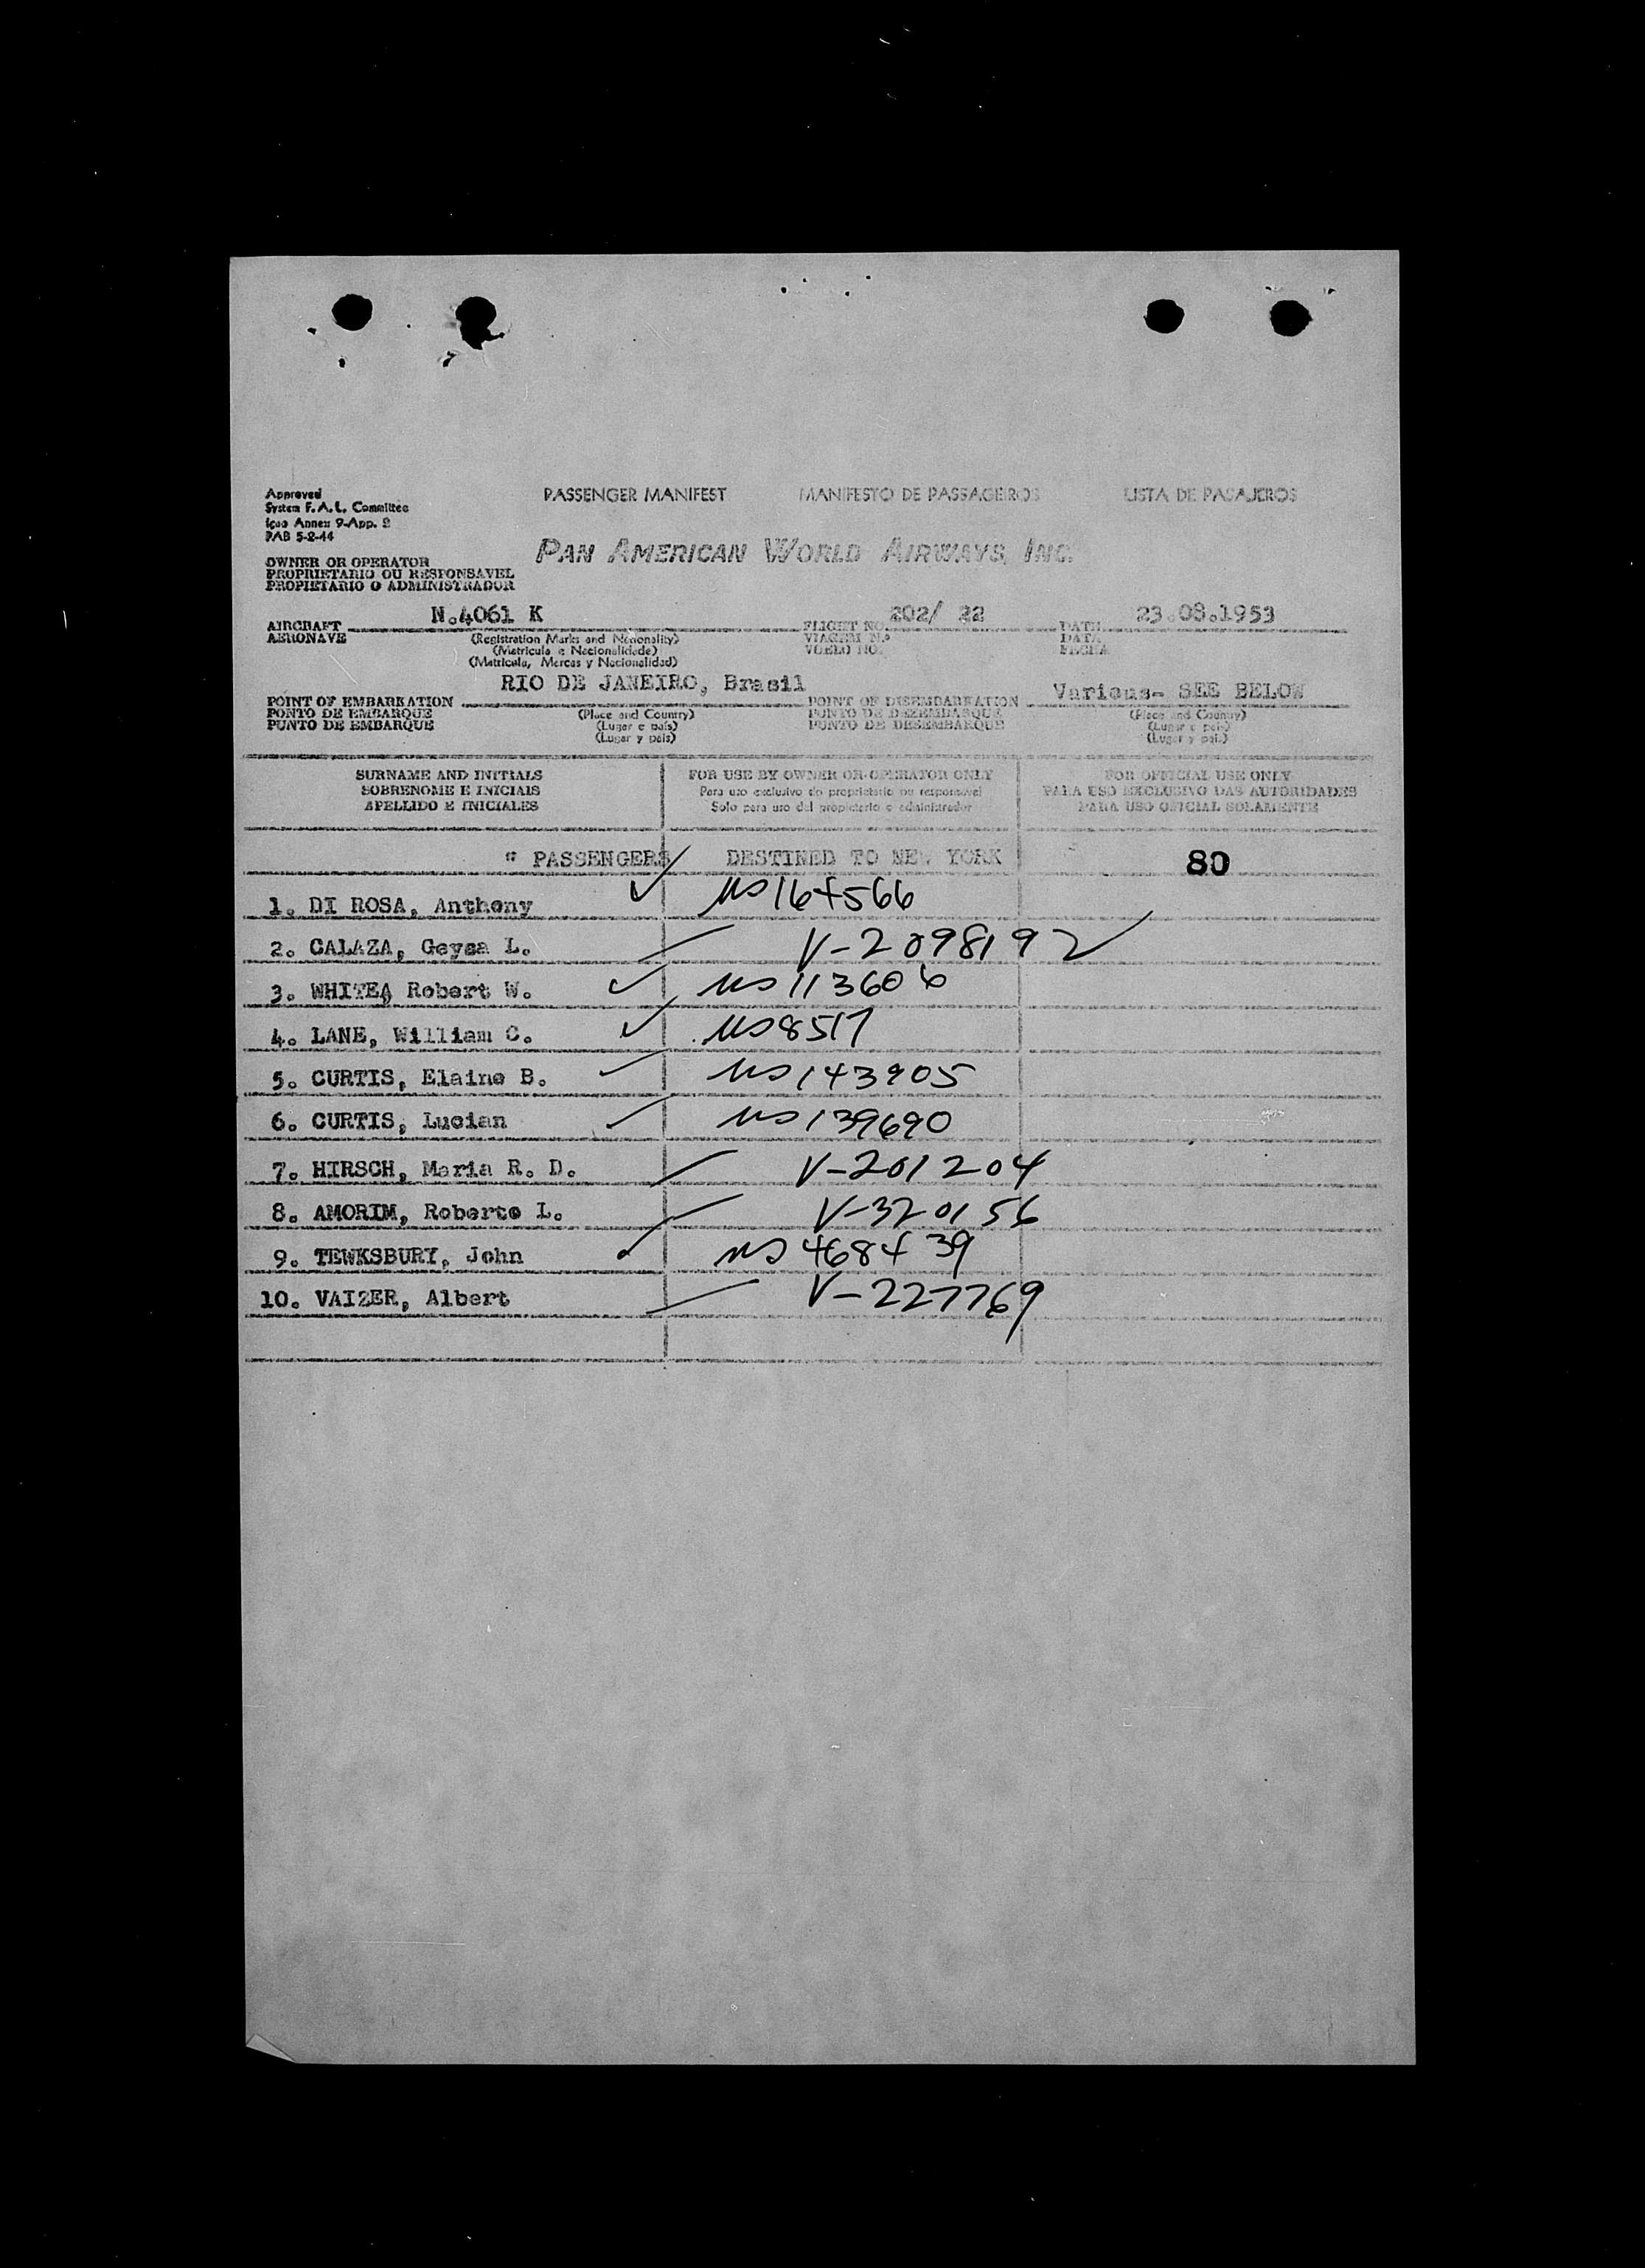 Approved
System F.A.L. Committee
Icao Annex 9-App. 2
PAB 5-2-44
PASSENGER MANIFEST MANIFESTO DE PASSAGEIROS LISTA DE PASAJEROS
OWNER OR OPERATOR
PROPRIETARIO OU RESPONSAVEL
PROPIETARIO O ADMINISTRADOR
PAN AMERICAN WORLD AIRWAYS, INC.
N.4061 K 202/ 22 23.08.1953
AIRCRAFT FLIGHT NO. DATE
AERONAVE (Registration Marks and Nationality) VIAGEM N.º DATA
(Matricula e Nacionalidade) VUELO NO. FECHA
(Matricula, Marcas y Nacionalidad)
RIO DE JANEIRO, Brasil Various- SEE BELOW
POINT OF EMBARKATION POINT OF DISEMBARKATION
PONTO DE EMBARQUE (Place and Country) PONTO DE DESEMBARQUE (Place and Country)
PUNTO DE EMBARQUE (Lugar e país) PUNTO DE DESEMBARQUE (Lugar e país)
(Lugar y país) (Lugar y país)
SURNAME AND INITIALS FOR USE BY OWNER OR OPERATOR ONLY FOR OFFICIAL USE ONLY
SOBRENOME E INICIAIS Para uso exclusivo do proprietario ou responsavel PARA USO EXCLUSIVO DAS AUTORIDADES
APELLIDO E INICIALES Solo para uso del propietario o administrador PARA USO OFICIAL SOLAMENTE
" PASSENGERS DESTINED TO NEW YORK 80
1. DI ROSA, Anthony US 164566
2. CALAZA, Geysa L. V-2098192
3. WHITE, Robert W. US 113606
4. LANE, William C. US 8517
5. CURTIS, Elaine B. US 143905
6. CURTIS, Lucian US 139690
7. HIRSCH, Maria R. D. V-201204
8. AMORIM, Roberto L. V-320156
9. TEWKSBURY, John US 468439
10. VAIZER, Albert V-227769